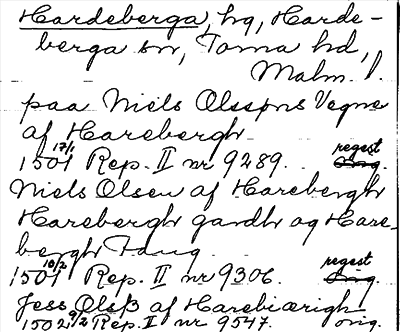 Hardeberga, hg, Harde-
berga sn, Torna hd,
Malm. l.
paa Niels Olssøns Vegne
af Harebergh
1501 17/1 Rep. II nr 9289. regest
Niels Olsen af Harebergh
Harebergh gardh og Hare-
bergh Fang
1501 10/2 Rep. II nr 9306 regest
Jess Olsß af Harebiærigh
1502 9/2 Rep. II nr 9547. orig.